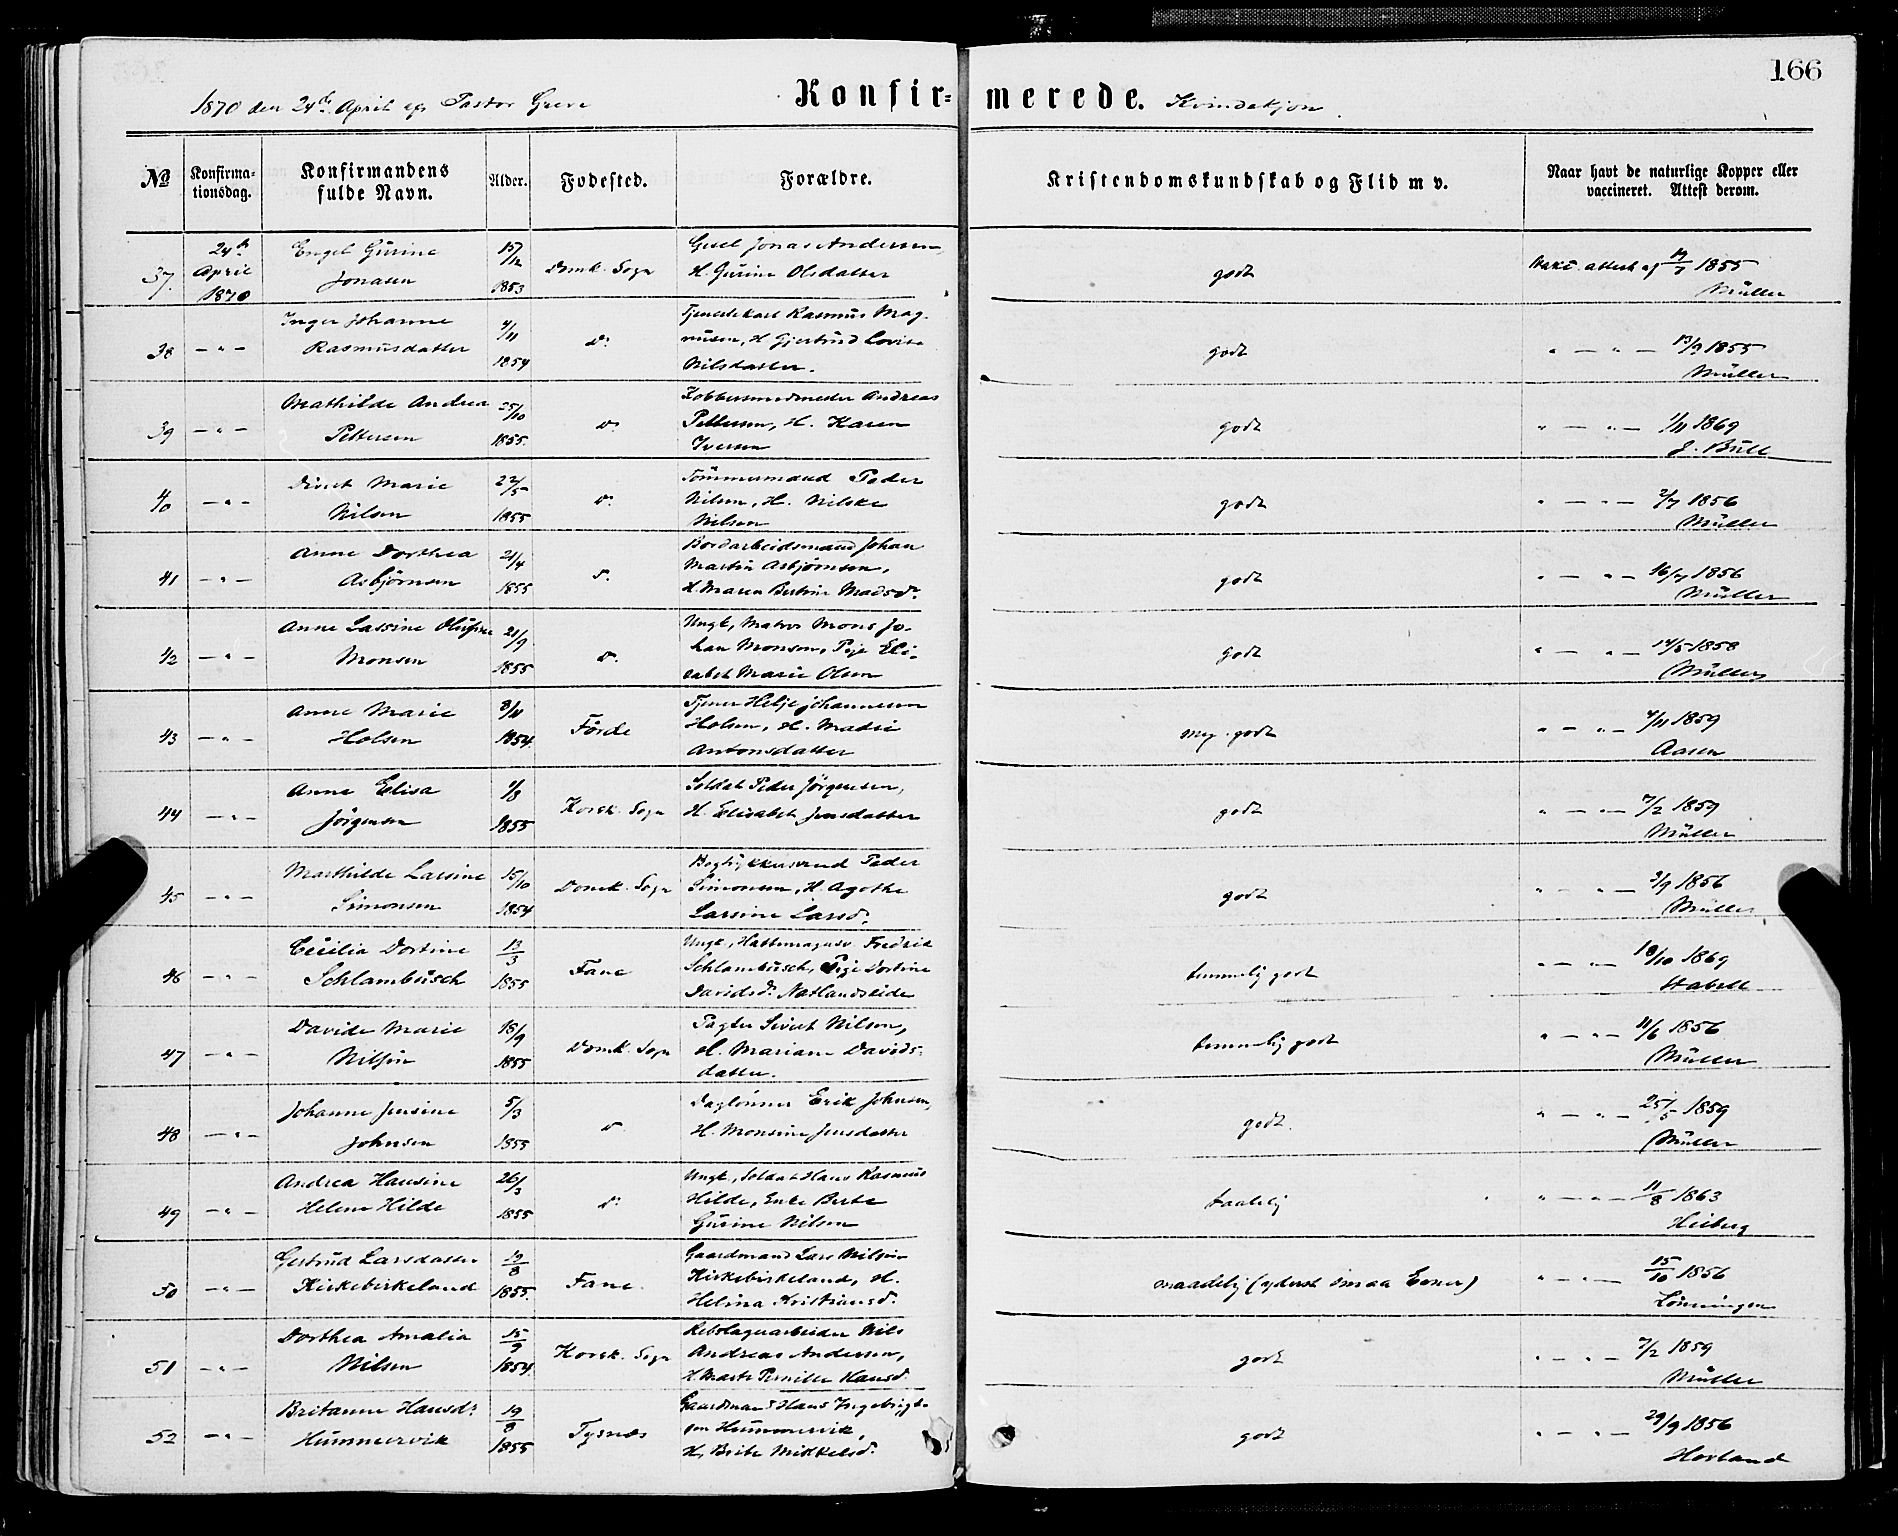 166
1870 den 24de April af Pastor Greve
Konfir=merede. Kvindekjøn.
№ Konfirmationsdag. Konfirmandens fulde Navn. Alder. Fødested. Forældre. Kristendomskundskab og Flid m v. Naar havt de naturlige Kopper eller vaccineret. Attest derom.
37. 24de April 1870 Engel Gurine Jonasen 15/12 1853 Domk. Sogn Gesel Jonas Andersen, H. Gurine Olsdatter godt Vakc. attest af 1855 Müller
38 — „ — Inger Johanne Rasmusdatter 4/11 1854 do Tjenestekarl Rasmus Magnusen, H Gjertrud Lovise Nilsdatter. godt „ — „ — 13/9 1855 Müller
39 — „ — Mathilde Andrea Pettersen 25/10 1855. do Kobbersmedmester Andreas Pettersen, H. Karen Iversen godt „ — „ — 1/11 1869 J. Bull
40 — „ — Sivert Marie Nilsen 22/5 1855 do Tømmermand Peder Nilsen, H. Nilske Nilsen godt „ — „ — 2/7 1856 Müller
41 — „ — Anne Dorthea Asbjørnsen 21/4 1855 do Bordarbeidsmand Johan Martin Asbjørnsen, H. Maren Bertine Madsdr godt „ — „ — 16/7 1856 Müller
42 — „ — Anne Lassine Olufine Monsen 21/9 1855 do Ungk, Matros Mons Johan Monsen, Pige Elisabet Marie Olsen godt „ — „ — 14/5 1858 Müller
43 — „ — Anne Marie Holsen 8/11 1854. Førde Tjener Helje Johannesen Holsen, H. Madsi Antonsdatter meg. godt „ — „ — 4/11 1859 Aasen
44 — „ — Anne Elisa Jörgensen 1/8 1855 Korsk. Sogn Soldat Peder Jörgensen, H. Elisabet Jensdatter godt „ — „ — 7/2 1859 Müller
45 — „ — Mathilde Larsine Simonsen 15/10 1854 Domk. Sogn Bogtrykkersvend Peder Simonsen, H. Agothe Larsine Larsd. godt „ — „ — 3/9 1856 Müller
46 — „ — Cecilia Dortine Schlambusch 13/3 1855 Fane Ungk, Hattemagersv. Fredrik Schlambusch, Pige Dortine Davidsdr Natlandseide temmelig godt „ — „ — 18/10 1869 Stabell
47 — „ — Davide Marie Nilsen 18/9 1855 Domk. Sogn Pagter Sivert Nilsen, H. Mariane Davidsdatter. temmelig godt „ — „ — 11/6 1856 Müller
48 — „ — Johanne Jensine Johnsen 5/3 1855 do Daglønner Erik Johnsen, H. Monsine Jensdatter godt. „ — „ — 25/5 1859 Müller
49 — „ — Andrea Hansine Helene Hilde 26/3 1855 do Ungk, Soldat Hans Rasmus Hilde, Enke Berte Gurine Nilsen taalelig „ — „ — 11/8 1863 Heiberg
50 — „ — Gertrud Larsdatter Kirkebirkeland 12/8 1855. Fane. Gaardmand Lars Nilsen Kirkebirkeland, H. Helina Kristiansd. maadelig (yderst smaa Evner) „ — „ — 15/10 1856 Lönningen
51 — „ — Dorthea Amalia Nilsen 15/9 1854. Korsk. Sogn Rebslagerarbeider Nils Andreas Andersen, H. Marte Pernille Hansd. godt „ — „ — 7/2 1859 Müller
52 — „ — Britanne Hansdr Hummervik 19/8 1855 Tysnæs Gaardmand Hans Ingebrigtsen Hummervik, H. Brite Mikkelsd. godt „ — „ — 29/9 1856 Hovland